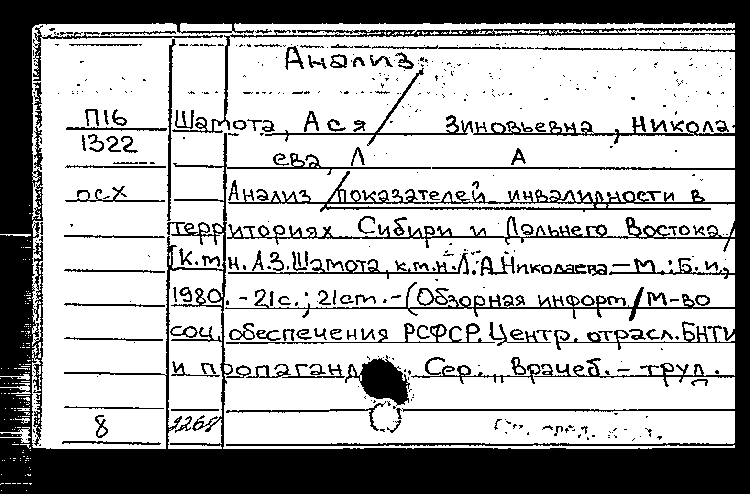 Анализ
П16 Шамота, Ася Зиновьевна, Никола-
1322 ева, Л А
осх Анализ показателей инвалидности в
территориях Сибири и Дальнего Востока /
[к.м.н. А.З. Шамота, к.м.н. Л.А Николаева. — М.: Б.и.,
1980. - 21с.; 21см. - (Обзорная информ / М-во
соц. обеспечения РСФСР. Центр. отрасл. БНТИ
и пропаганд . Сер.: „Врачеб. - труд.
8 2268